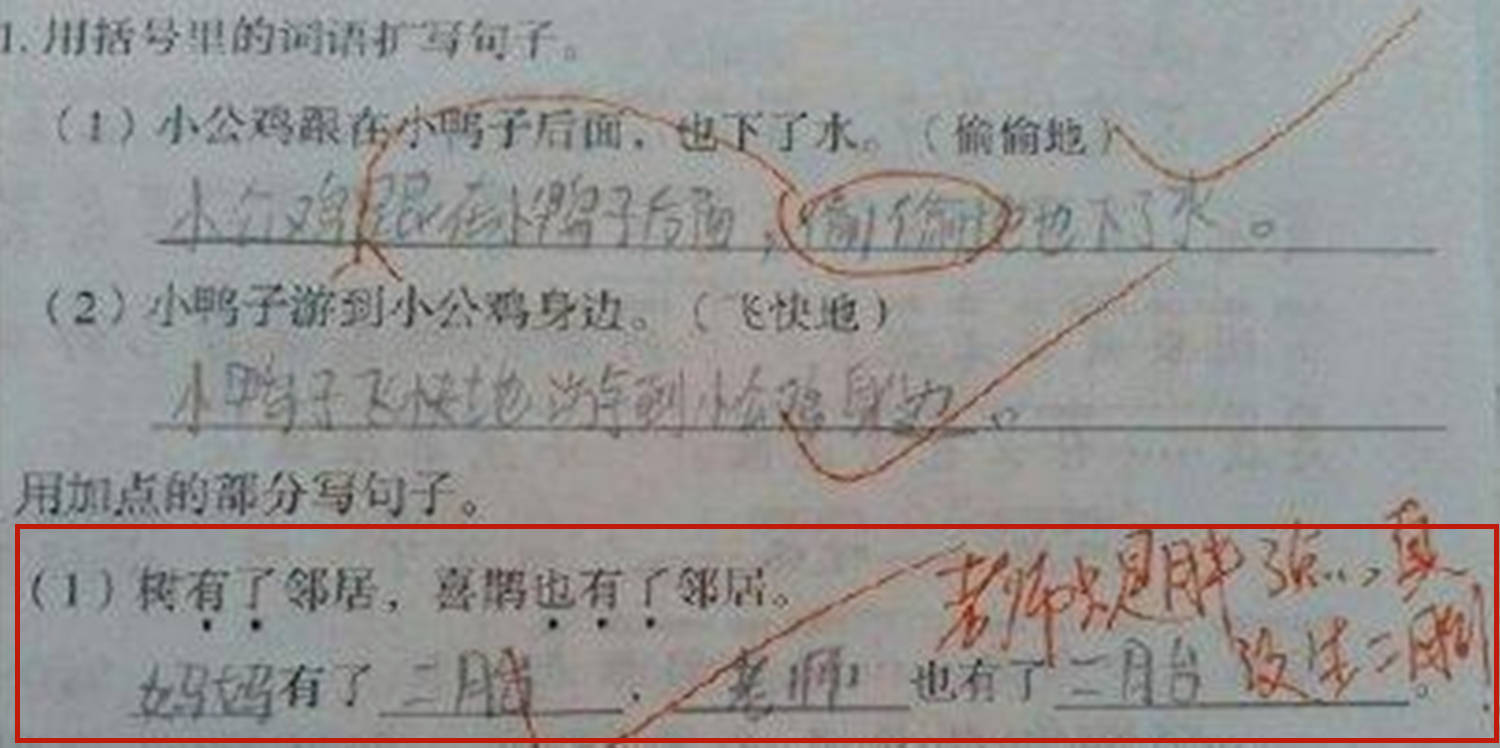 1.用括号里的词语扩写句子。
(1)小公鸡跟在小鸭子后面，也下了水。(偷偷地)
小公鸡跟在小鸭子后面，偷偷地也下了水。
(2)小鸭子游到小公鸡身边。(飞快地)
小鸭子飞快地游到小公鸡身边。
用加点的部分写句子。
(1)树有了邻居，喜鹊也有了邻居。
老师只是胖 真
没怀二胎
妈妈有了二胎，老师也有了二胎。